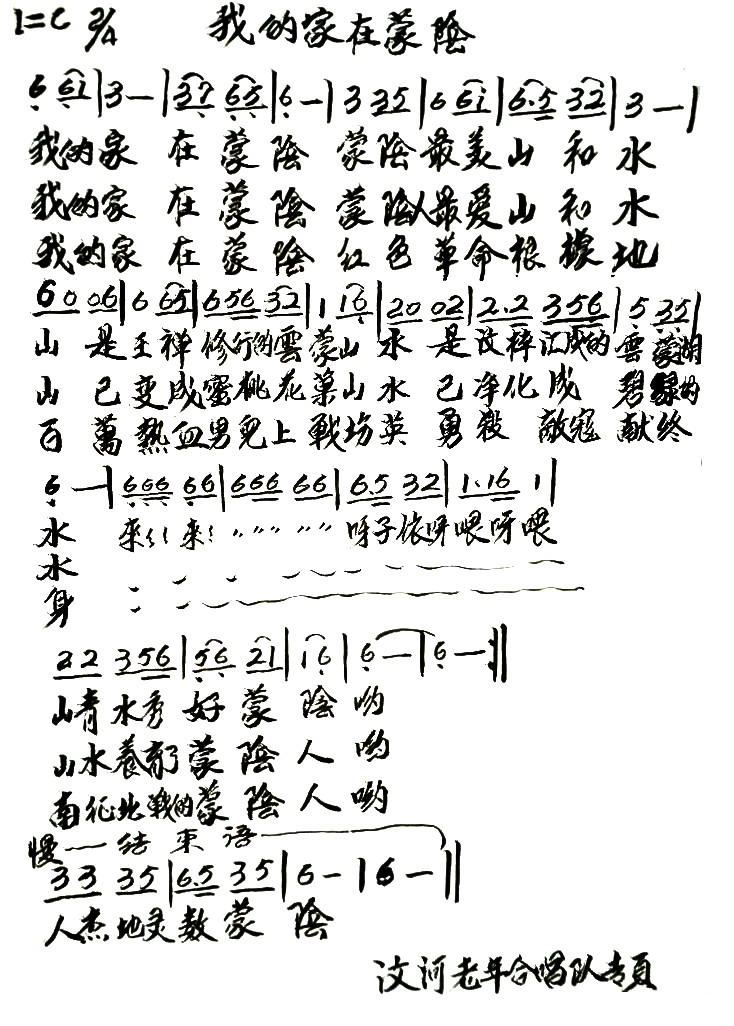 1=C 2/4 我的家在蒙陰
6 6i|3—|37 65|6—|3 35|6 6i|6.5 32|3—|
我的家 在 蒙 陰 蒙陰最美山 和 水
我的家 在 蒙 陰 蒙陰人最爱山 和 水
我的家 在 蒙 陰 红 色 革命根據地
60 06|6 65|656 32|1 16|20 02|2.2 356|5 35|
山 是王禅修行的雲蒙山 水 是汶梓汇成的雲蒙湖
山 已变成蜜桃花菓山水 已净化成 碧緑的
百 萬熱血男兒上戰场英 勇殺 敵寇 献终
6—|666 66|666 66|6.5 32|1.16 1|
水 來 來 呀子依呀喂呀喂
水
身
22 356|56 21|16|6—|6—:||
山青水秀好 蒙 陰 哟
山水養育蒙 陰 人 哟
南征北戰的蒙 陰 人 哟
慢——结束语
33 35|6.5 35|6—|6—||
人杰地灵数蒙 陰
汶河老年合唱队专頁